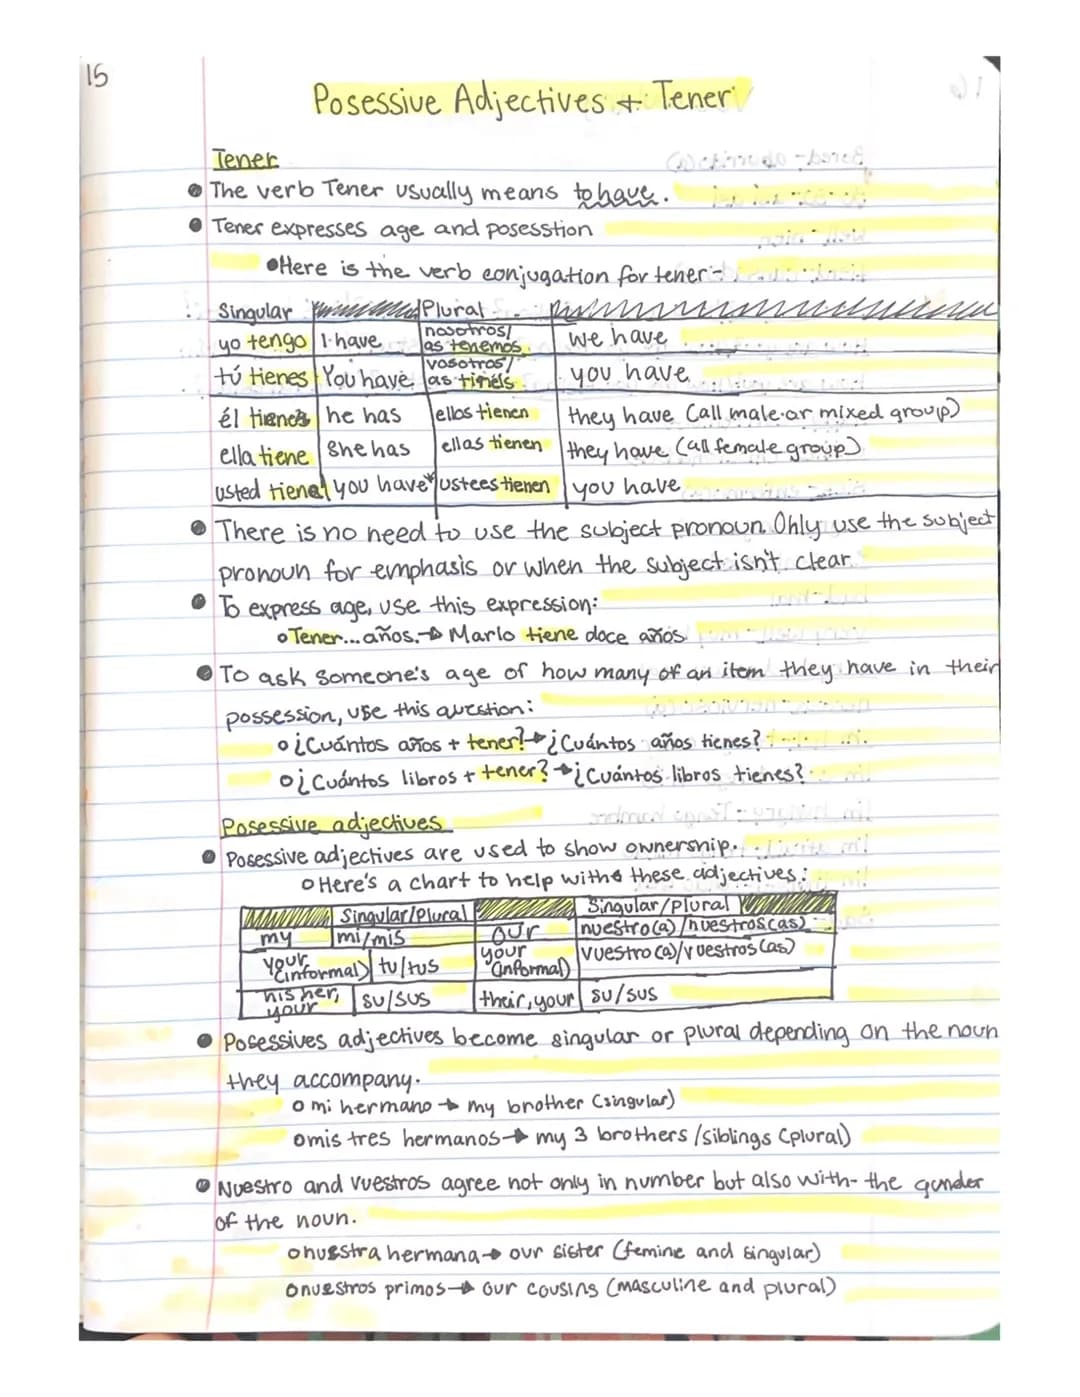 15
Posessive Adjectives + Tener
Tener
• The verb Tener usually means to have.
• Tener expresses age and posesstion
• Here is the verb conjugation for tener-
Singular Plural
yo tengo I have nosotros/as tenemos we have
tú tienes You have vosotros/as tinéis you have
él tiene he has ellos tienen they have (all male or mixed group)
ella tiene she has ellas tienen they have (all female group)
usted tiene you have ustees tienen you have
• There is no need to use the subject pronoun. Only use the subject
pronoun for emphasis or when the subject isn't clear
• To express age, use this expression:
o Tener... años. → Marlo tiene doce años
• To ask someone's age of how many of an item they have in their
possession, use this question:
o ¿Cuántos años + tener? → ¿Cuántos años tienes?
o ¿Cuántos libros + tener? → ¿Cuántos libros tienes?
Posessive adjectives
• Posessive adjectives are used to show ownership.
o Here's a chart to help with these adjectives:
Singular/Plural Singular/plural
my mi/mis our nuestro(a)/nuestros(as)
your (informal) tu/tus your (informal) vuestro(a)/vuestros(as)
his her, your su/sus their, your su/sus
• Posessives adjectives become singular or plural depending on the noun
they accompany.
o mi hermano → my brother (singular)
o mis tres hermanos → my 3 brothers/siblings (plural)
• Nuestro and vuestros agree not only in number but also with- the gender
of the noun.
o nuestra hermana → our sister (femine and singular)
o nuestros primos → our cousins (masculine and plural)